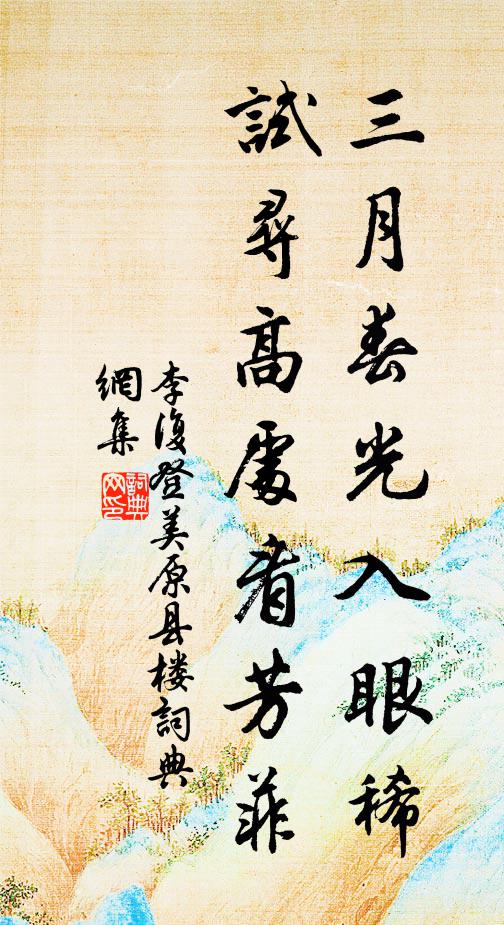 三月春光入眼稀
試尋高處看芳菲
李復登美原县楼詞典
網集
詞典
网印